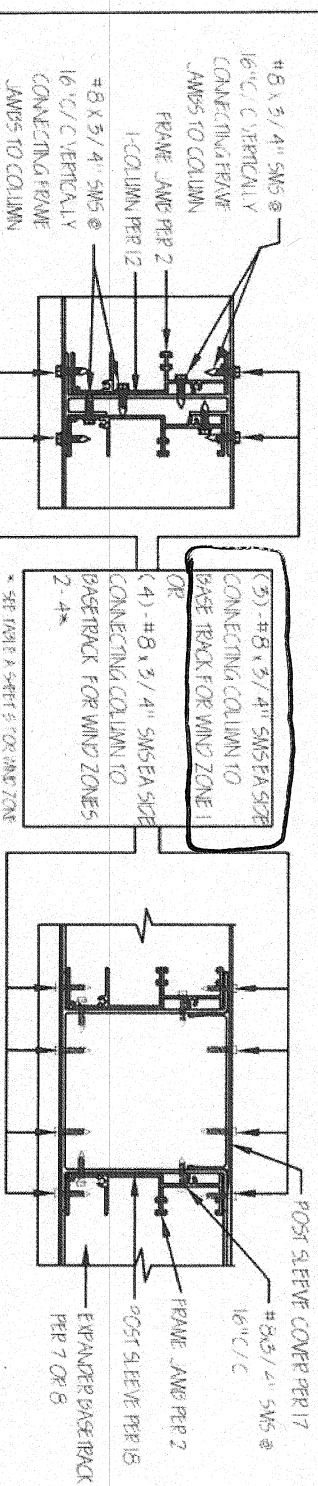 #8 x 3/4" SMS @
16" C/C VERTICALLY
CONNECTING FRAME
JAMBS TO COLUMN
FRAME JAMB PER 2
1-COLUMN PER 12
#8 x 3/4" SMS @
16" C/C VERTICALLY
CONNECTING FRAME
JAMBS TO COLUMN
(3) - #8 x 3/4" SMS EA SIDE
CONNECTING COLUMN TO
BASE TRACK FOR WIND ZONE 1
OR
(4) - #8 x 3/4" SMS EA SIDE
CONNECTING COLUMN TO
BASE TRACK FOR WIND ZONES
2 - 4*
* SEE TABLE A SHEET 5 FOR WIND ZONE
POST SLEEVE COVER PER 17
#8 3/4" SMS @
16" C/C
FRAME JAMB PER 2
POST SLEEVE PER 18
EXPANDER BASE TRACK
PER 7 OR 8